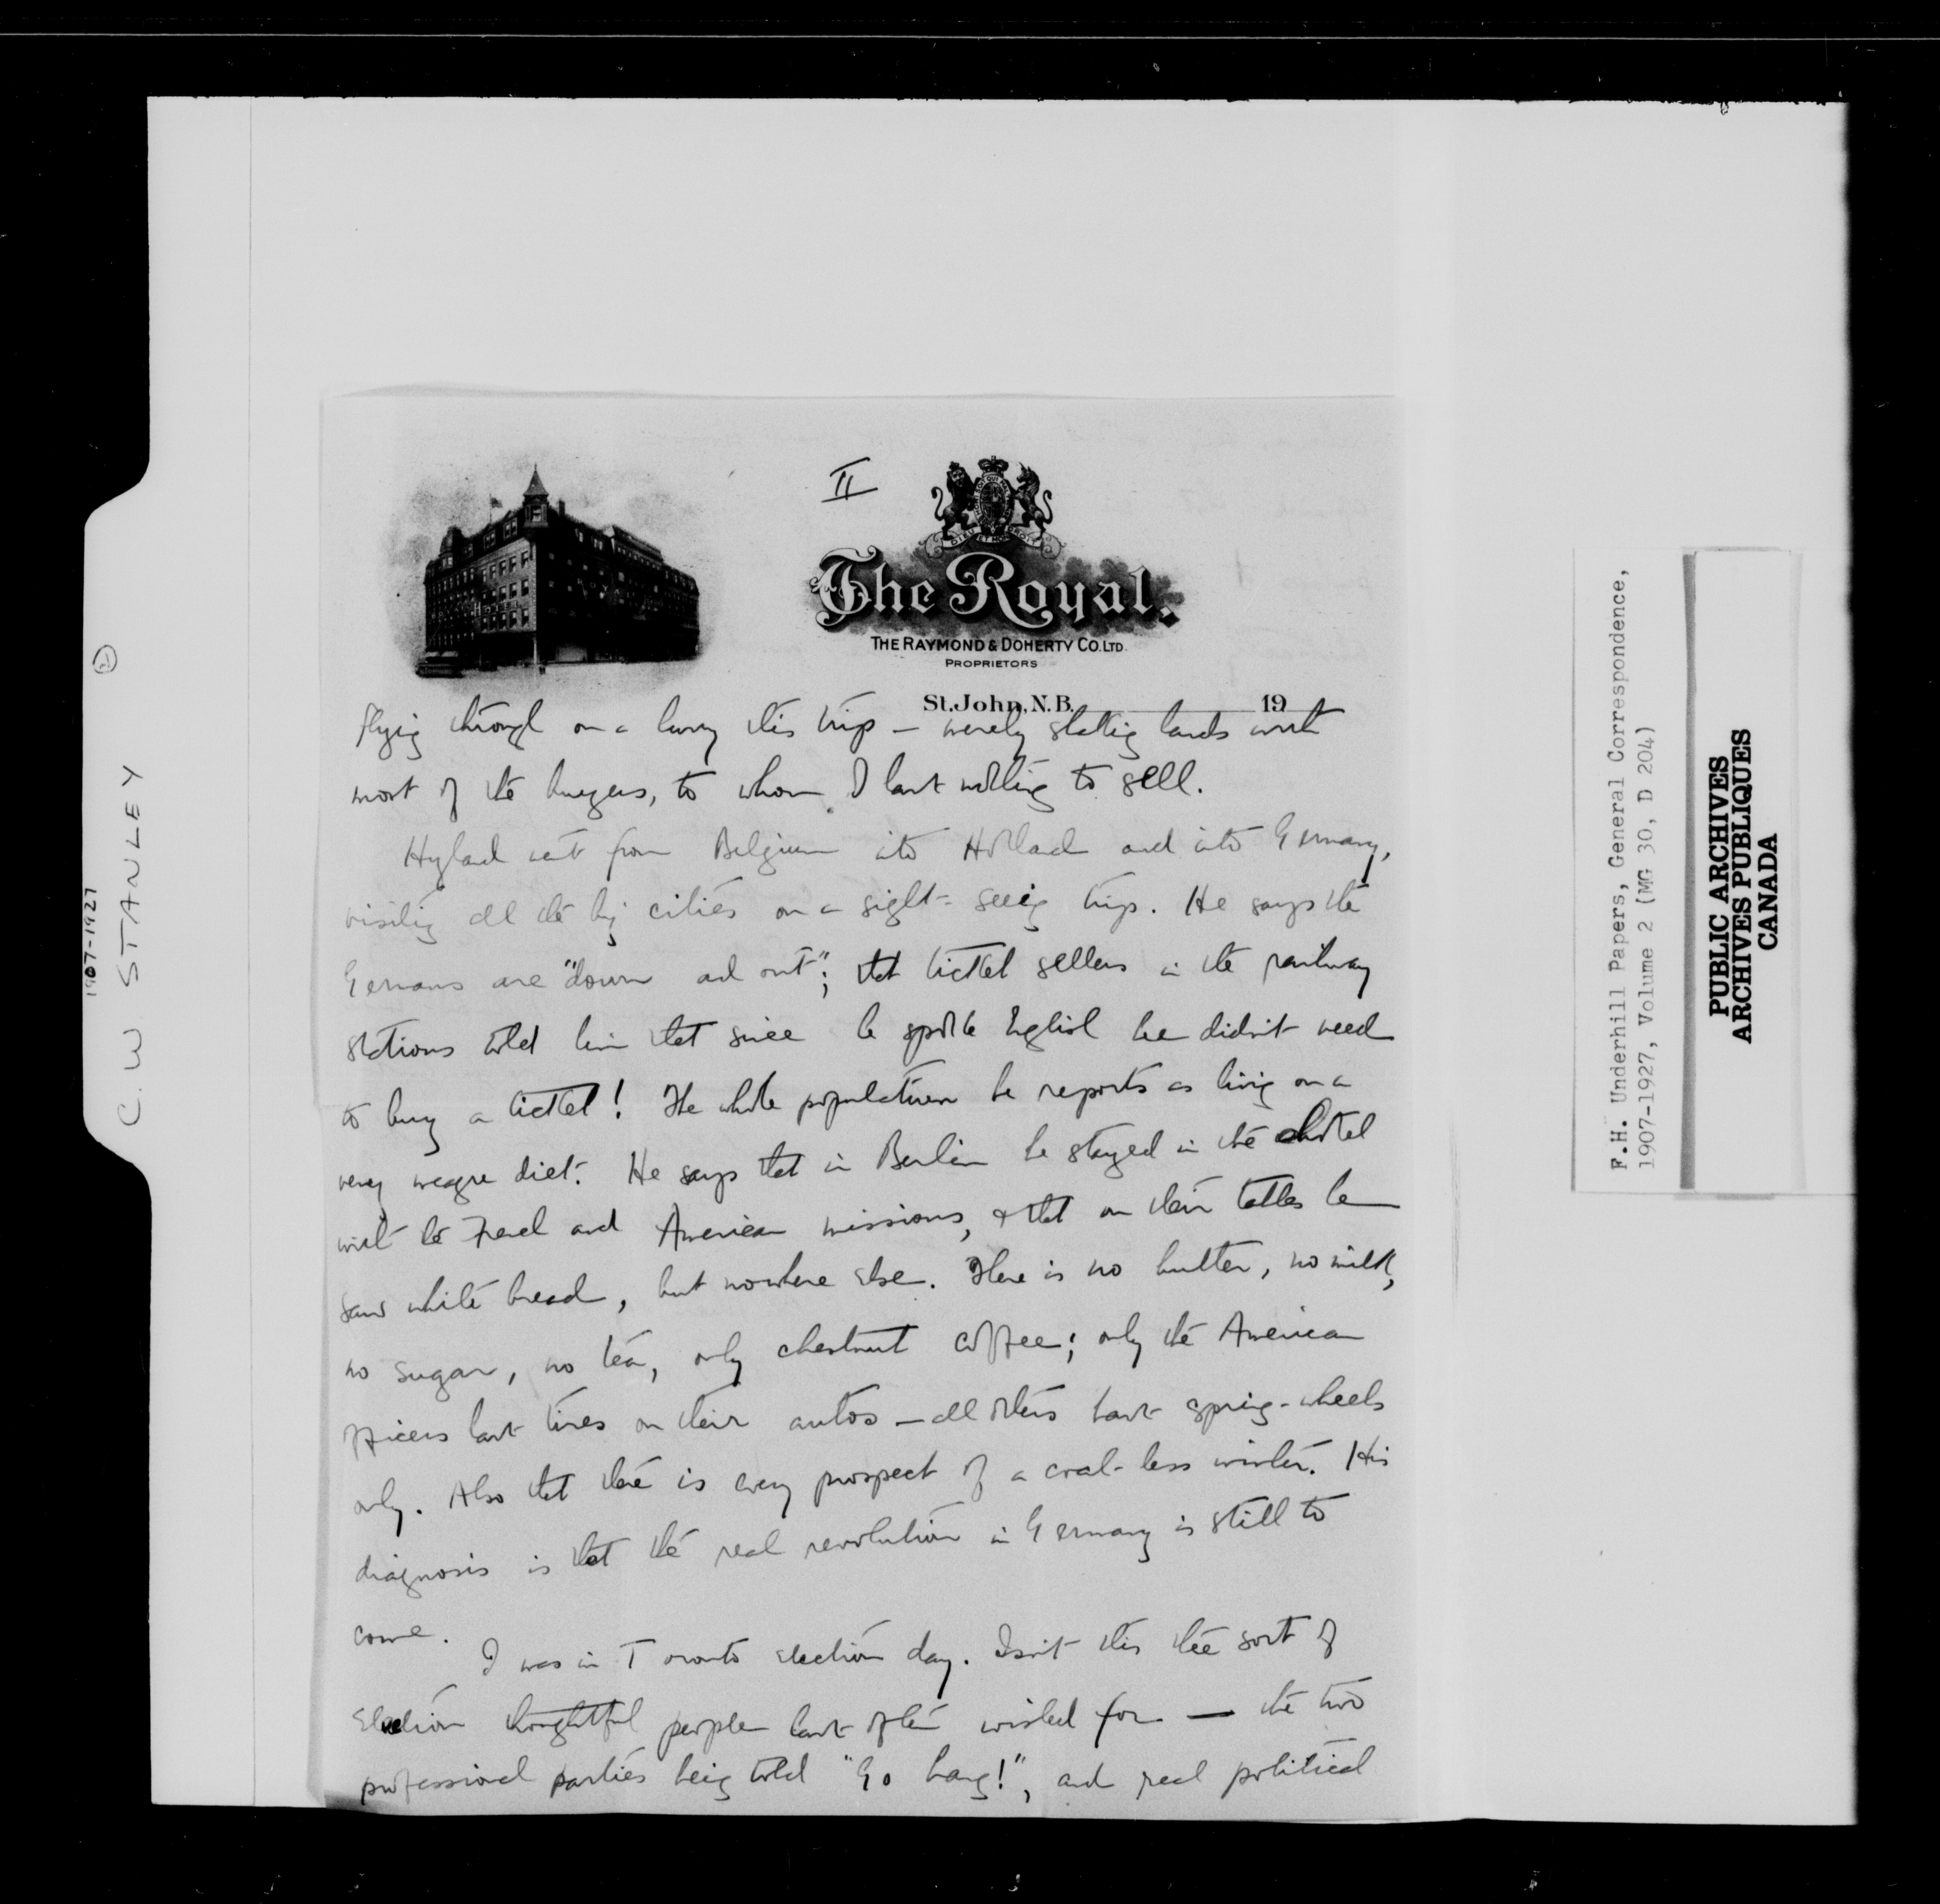 II
The Royal.
THE RAYMOND & DOHERTY CO. LTD.
PROPRIETORS
St. John, N.B. 19
flying through on a hurry this trip — merely shaking hands with
most of the buyers, to whom I have nothing to sell.
Hyland went from Belgium into Holland and into Germany,
visiting all the big cities on a sight-seeing trip. He says the
Germans are "down and out"; that ticket sellers in the railway
stations told him that since he spoke English he didn't need
to buy a ticket! The whole population he reports as living on a
very meagre diet. He says that in Berlin he stayed in the hotel
with the French and American missions, & that on their tables he
saw white bread, but nowhere else. There is no butter, no milk,
no sugar, no tea, only chestnut coffee; only the American
officers have tires on their autos — all others have spring-wheels
only. Also that there is every prospect of a coal-less winter. His
diagnosis is that the real revolution in Germany is still to
come.
I was in Toronto election day. Isn't this the sort of
election thoughtful people have often wished for — the two
professional parties being told "Go hang!", and real political
C.W. STANLEY
2
1907-1927
F.H. Underhill Papers, General Correspondence,
1907-1927, Volume 2 (MG 30, D 204)
PUBLIC ARCHIVES
ARCHIVES PUBLIQUES
CANADA